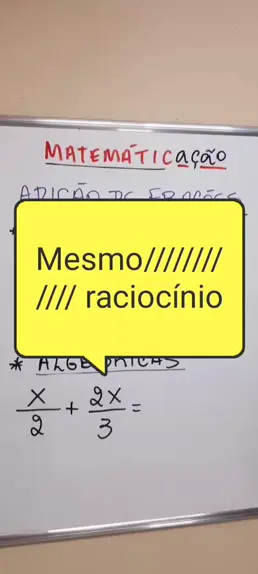 MATEMÁTICAÇÃO
ADIÇÃO DE FRAÇÕES
Mesmo////////
//// raciocínio
* ALGÉBRICAS
x/2 + 2x/3 =